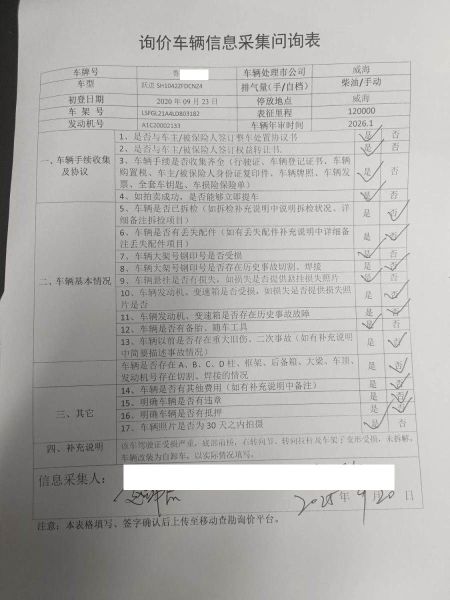 询价车辆信息采集问询表
车牌号 鲁 车辆处理市公司 威海
车型 跃进 SH1042ZFDCNZ4 排气量(手/自档) 柴油/手动
初登日期 2020 年 09 月 23 日 停放地点 威海
车 架 号 LSFGL21A4LD803182 表征里程 120000
发动机号 A1C20002133 车辆年审时间 2026.1
一、车辆手续收集及协议
1、是否与车主/被保险人签订整车处置协议书 是 否
2、是否与车主/被保险人签订权益转让书. 是 否
3、车辆手续是否收集齐全(行驶证、车辆登记证书、车辆
购置税、车主/被保险人身份证复印件、车辆牌照、车辆发
票、全套车钥匙、车损险保险单) 是 否
4、如拍卖成功,是否能够立即提车 是 否
二、车辆基本情况
5、车辆是否已拆检(如拆检补充说明中说明拆检状况、详
细备注拆检项目) 是 否
6、车辆是否有丢失配件(如有丢失配件补充说明中详细备
注丢失配件项目) 是 否
7、车辆大架号钢印号是否受损 是 否
8、车辆大架号钢印号是否存在历史事故切割、焊接 是 否
9、车辆悬挂是否有损失,如损失是否提供悬挂损失照片 是 否
10、车辆发动机、变速箱是否受损,如损失是否提供损失照
片是否 是 否
11、车辆发动机、变速箱是否存在历史事故故障 是 否
12、车辆是否有备胎、随车工具 是 否
13、车辆以前是否存在重大旧伤、二次事故(如有补充说明
中简要描述事故情况) 是 否
车辆是否存在 A、B、C、D 柱、框架、后备箱、大梁、车顶、
发动机号存在切割、焊接的情况 是 否
三、其它
14、车辆是否有其他费用(如有补充说明中备注) 是 否
15、明确车辆是否有违章 是 否
16、明确车辆是否有抵押 是 否
17、车辆照片是否为 30 天之内拍摄 是 否
四、补充说明
该车驾驶证受损严重,底部前桥,右转向节、转向拉杆及车架子变形受损,未拆解,
车辆改装为自卸车,以实际情况填写。
信息采集人:
2025 年 9 月 20 日
注意:本表格填写、签字确认后上传至移动查勘询价平台。